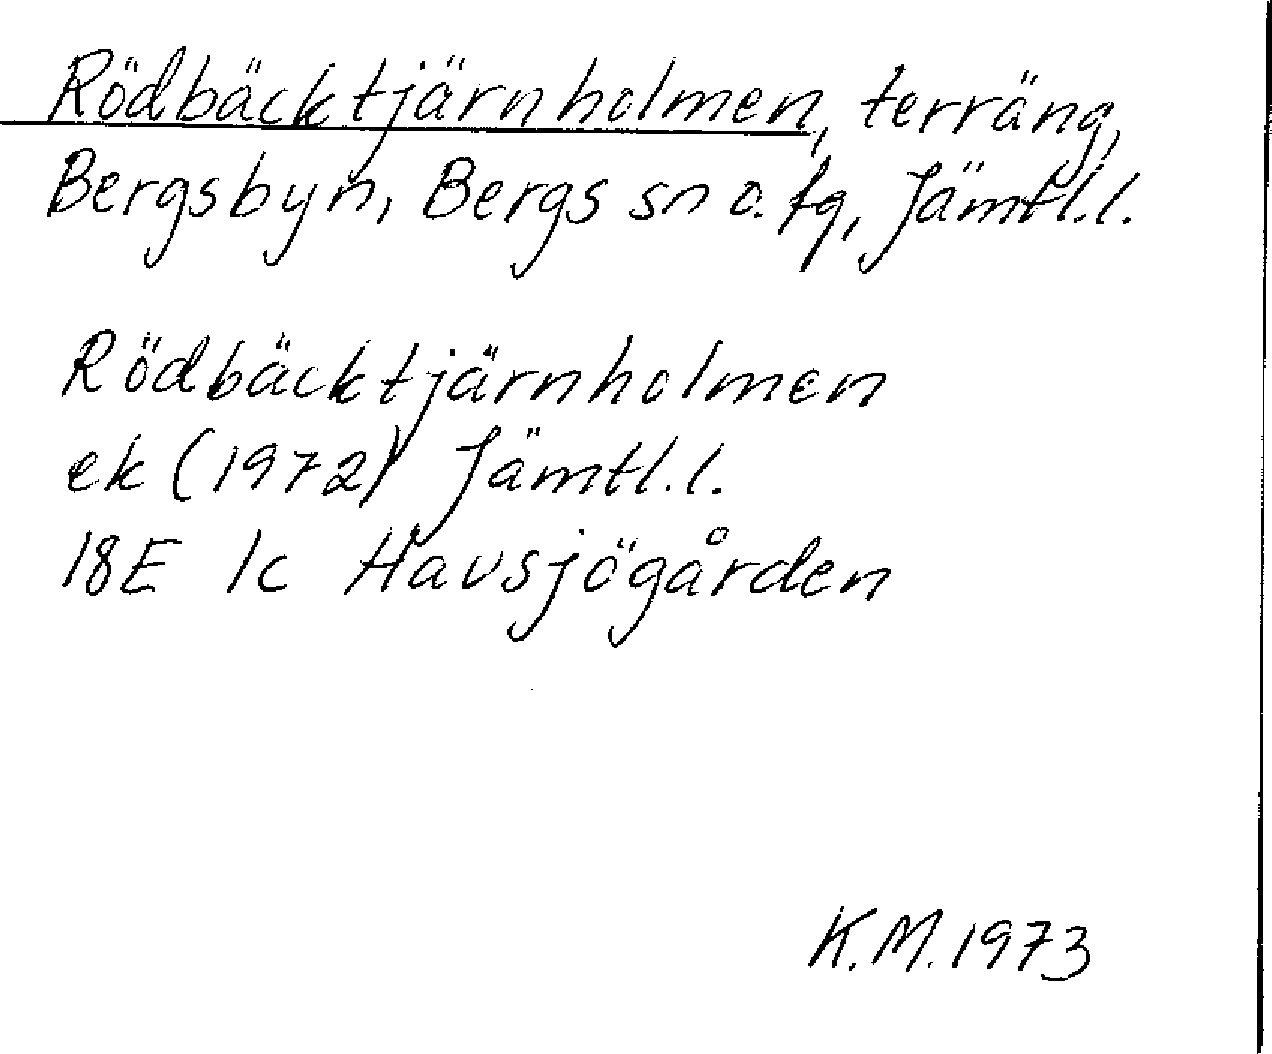 Rödbäcktjärnholmen, terräng,
Bergsbyn, Bergs sn o. tg, Jämtl.l.
Rödbäcktjärnholmen
ek (1972) Jämtl.l.
18E 1c Havsjögården
K.M. 1973